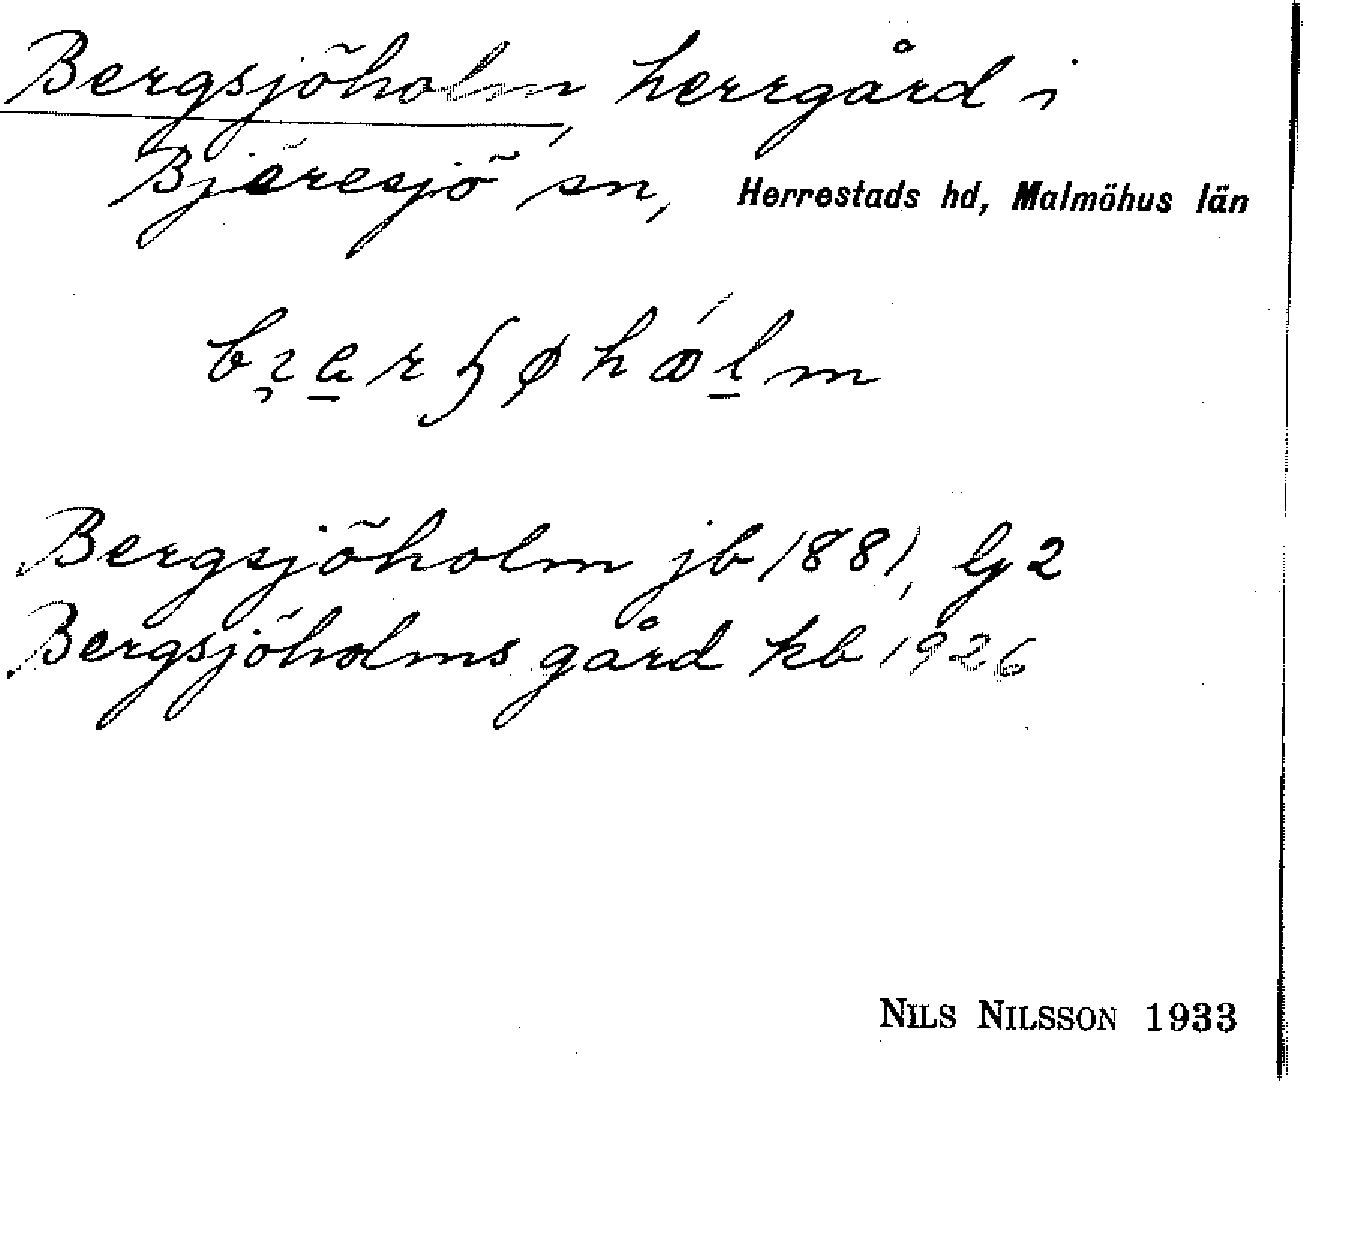 Bergsjöholm, herrgård i
Bjäresjö sn, Herrestads hd, Malmöhus län
Bergsjöholm jb 1881, Gj 2
Bergsjöholms gård kb 1926
NILS NILSSON 1933